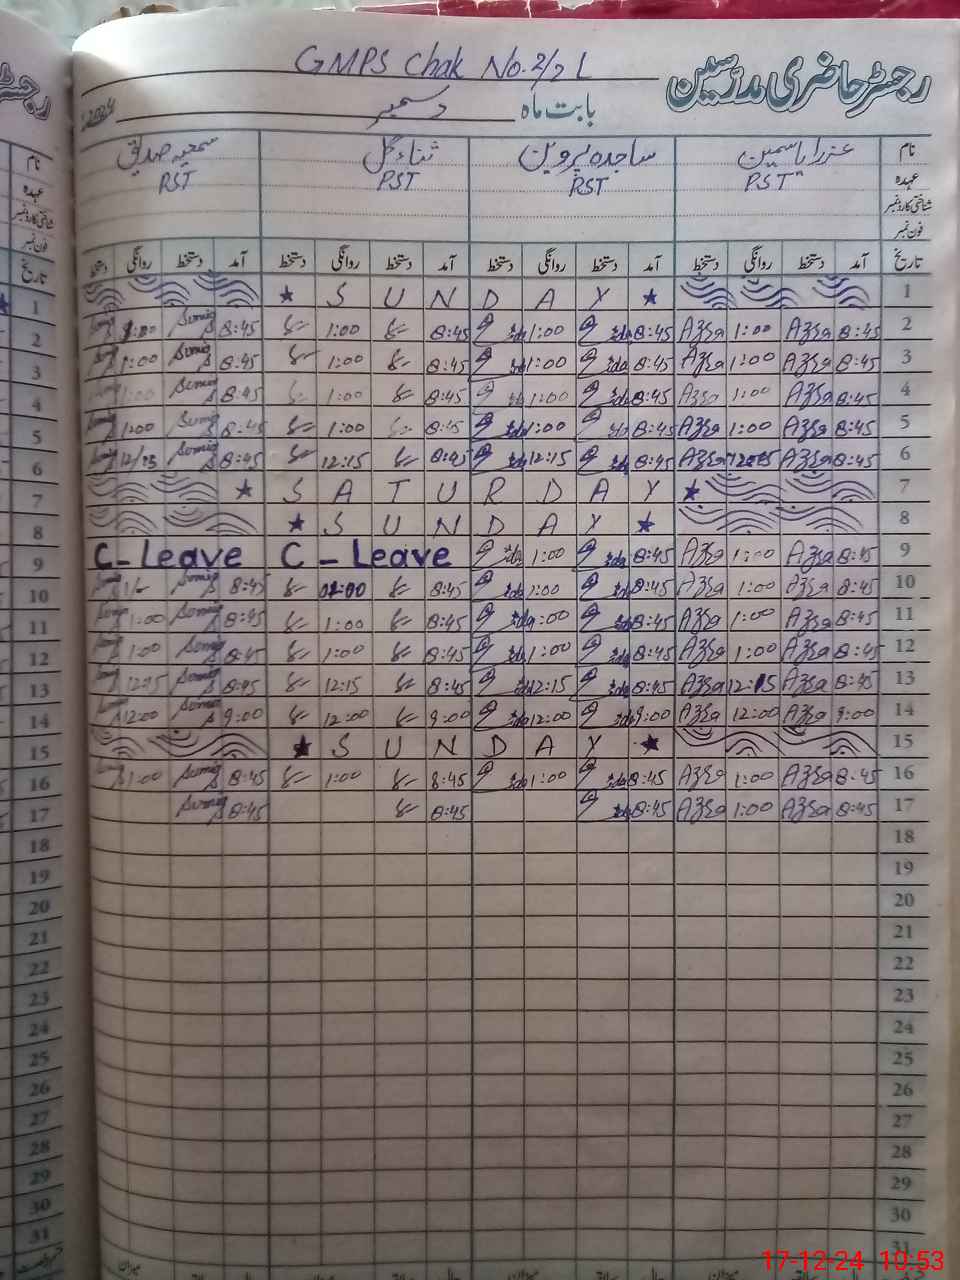 GMPS Chak No. 2/2 L
رجسٹر حاضری مدرسین
بابت ماہ دسمبر 2024
نام عذرا یاسمین ساجدہ پروین ثناء گل سمعیہ صدیق
عہدہ PST PST PST PST
شناختی کارڈ نمبر
فون نمبر
تاریخ آمد دستخط روانگی دستخط آمد دستخط روانگی دستخط آمد دستخط روانگی دستخط آمد دستخط روانگی دستخط
★ S U N D A Y ★ 1
1:00 8:45 1:00 8:45 1:00 8:45 Azra 1:00 Azra 8:45 2
1:00 8:45 1:00 8:45 1:00 8:45 Azra 1:00 Azra 8:45 3
1:00 8:45 1:00 8:45 1:00 8:45 Azra 1:00 Azra 8:45 4
1:00 8:45 1:00 8:45 1:00 8:45 Azra 1:00 Azra 8:45 5
8:45 12:15 8:45 12:15 8:45 Azra 12:15 Azra 8:45 6
★ S A T U R D A Y ★ 7
★ S U N D A Y ★ 8
C - Leave C - Leave 1:00 8:45 Azra 1:00 Azra 8:45 9
8:45 8:45 1:00 8:45 Azra 1:00 Azra 8:45 10
1:00 8:45 1:00 8:45 1:00 8:45 Azra 1:00 Azra 8:45 11
1:00 8:45 1:00 8:45 1:00 8:45 Azra 1:00 Azra 8:45 12
12:15 8:45 12:15 8:45 12:15 8:45 Azra 12:15 Azra 8:45 13
12:00 9:00 12:00 9:00 12:00 9:00 Azra 12:00 Azra 9:00 14
★ S U N D A Y ★ 15
1:00 8:45 1:00 8:45 1:00 8:45 Azra 1:00 Azra 8:45 16
8:45 8:45 8:45 Azra 1:00 Azra 8:45 17
18
19
20
21
22
23
24
25
26
27
28
29
30
31
17-12-24 10:53